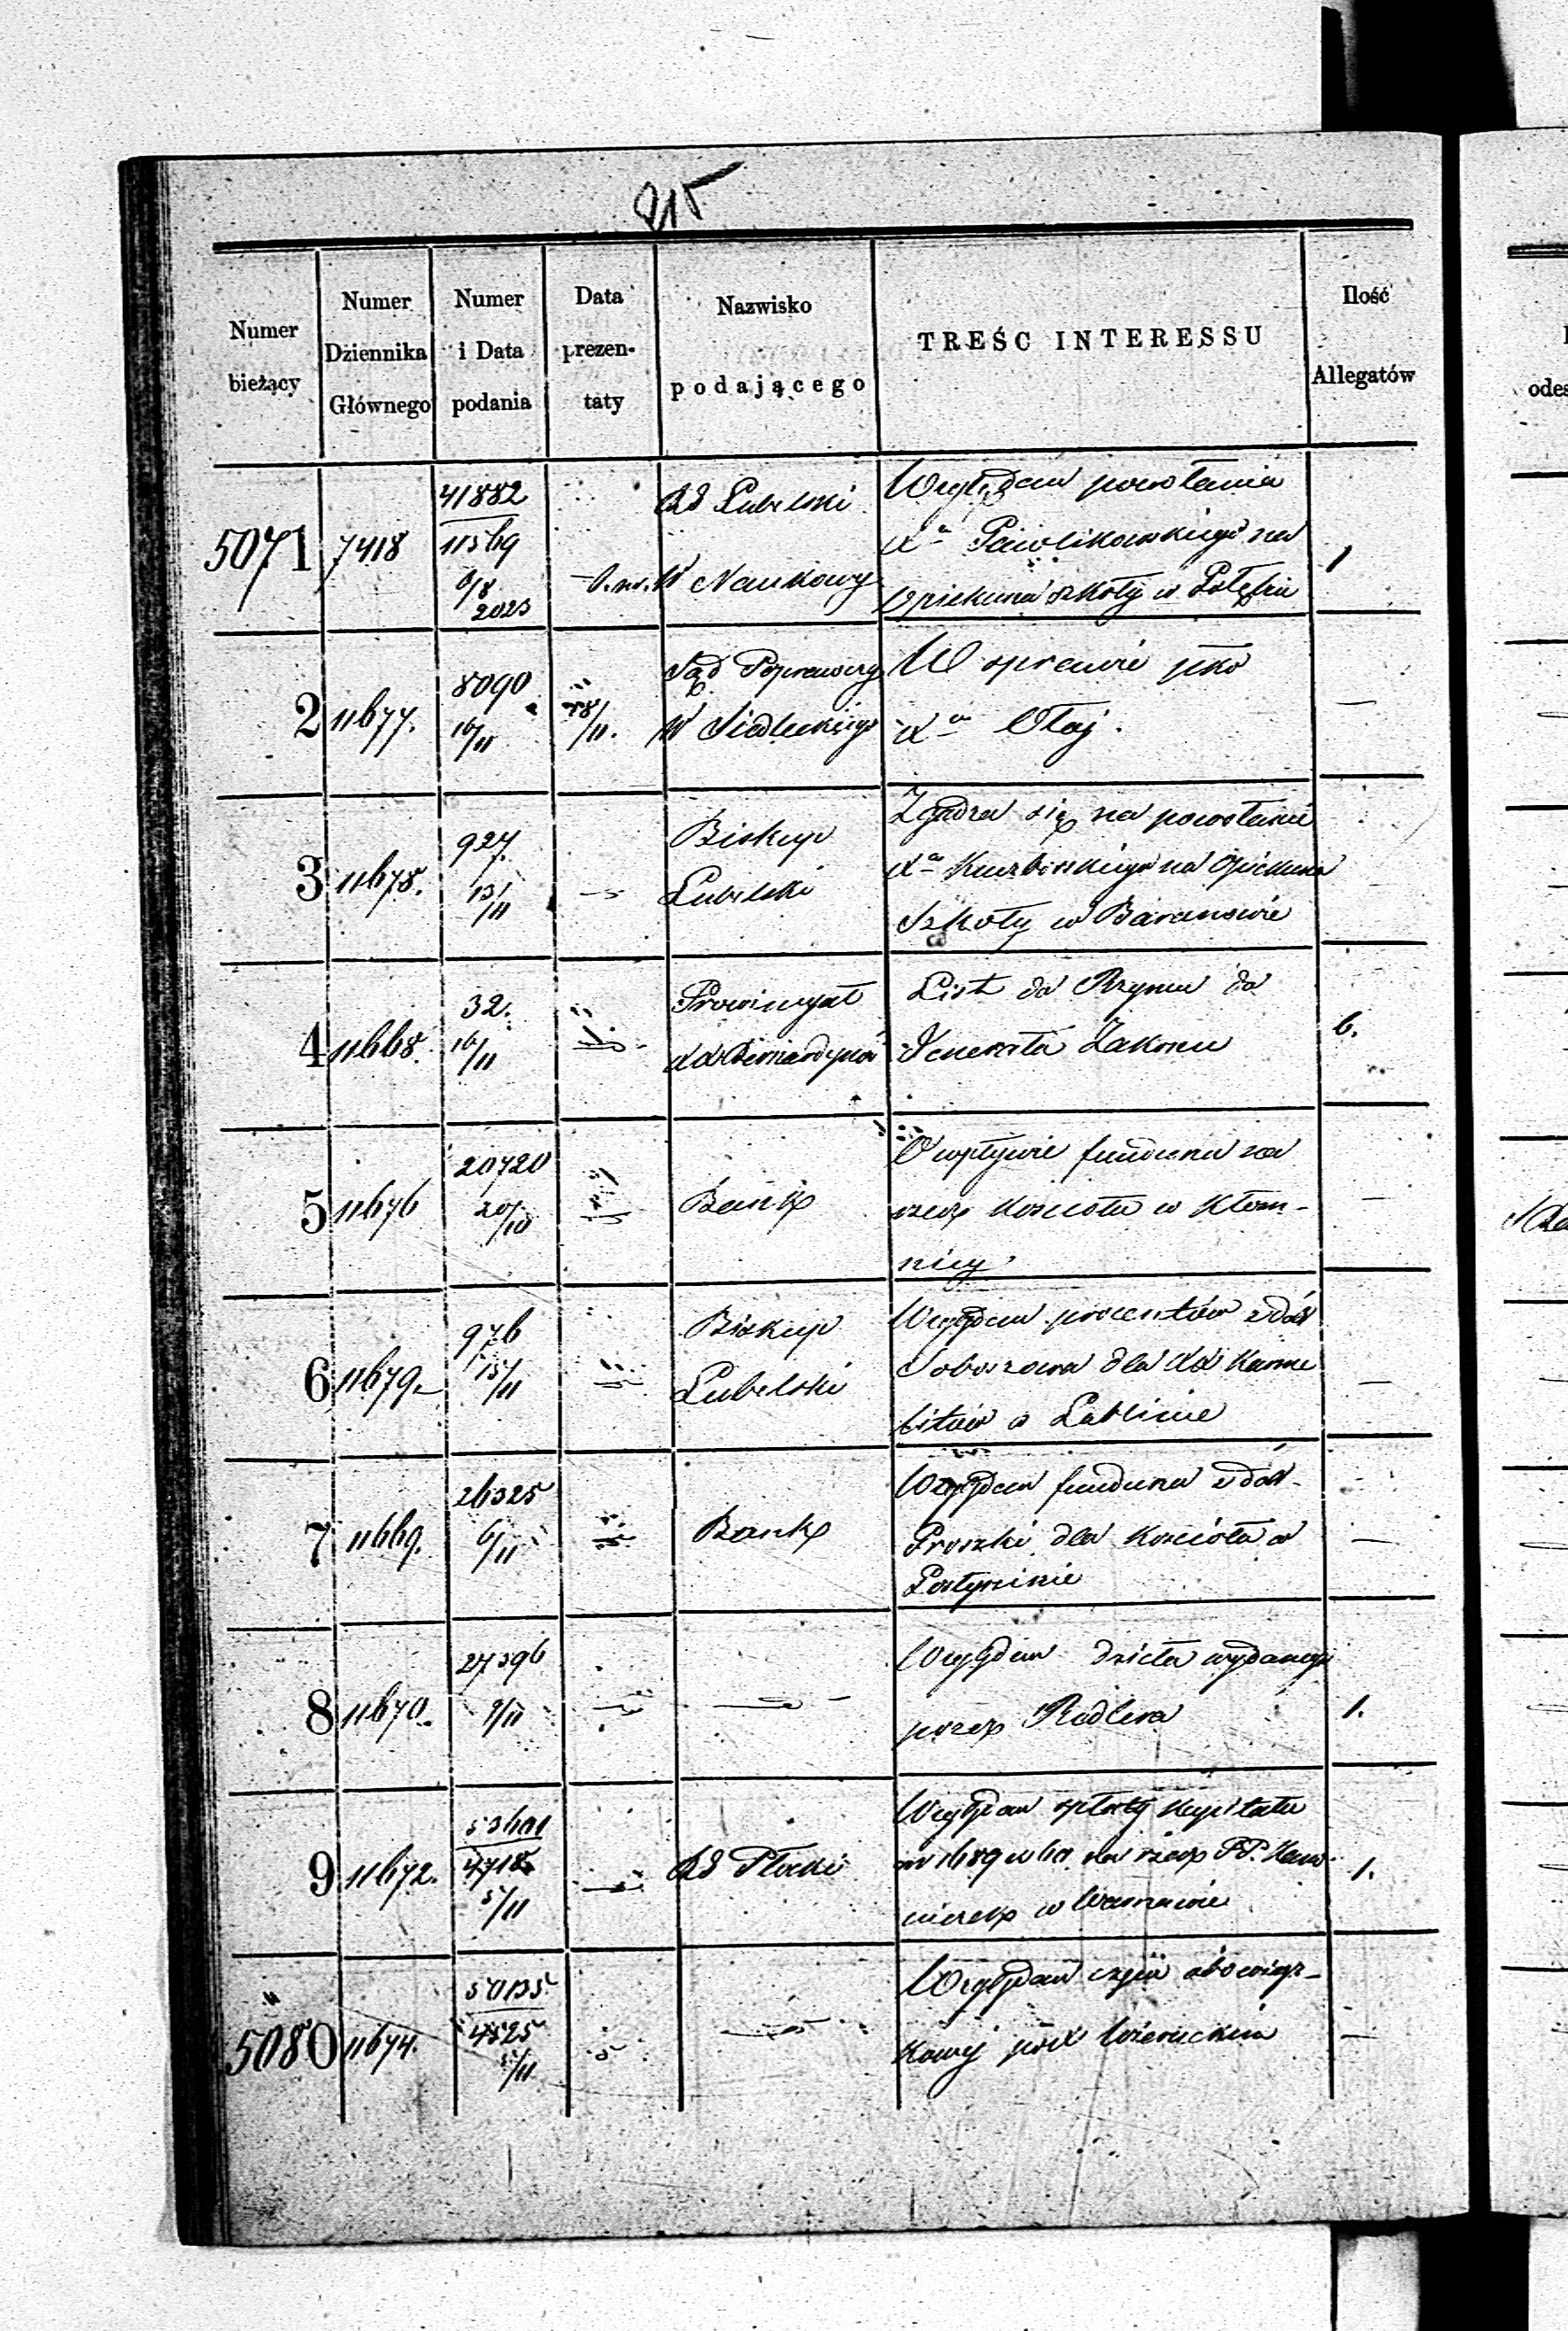 215
Numer bieżący
Numer Dziennika Głównego
Numer i Data podania
Data prezen- taty
Nazwisko podającego
TREŚC INTERESSU
Ilość Allegatów
5071 7418
41882
11569
6/8
2023
Rd Lubelski
W Naukowy
Wzglęđem powołania
Xa Pawlikowskiego na
Opiekuna szkoły w
1
2 11677.
8090
16/11
18/11.
Sąd Poprawczy
W Siedleckiego
W sprawie pko
Xa
—
3 11678.
927.
13/11
Biskup
Lubelski
Zgadza się na powołanie
Xa na Opiekuna
Szkoły w Baranowie
4 11668.
32.
16/11
Prowincyał
XX Bernardynów
List do Rzymu do
Jenerała Zakonu
6.
5 11676
20720
20/10
Bank
O wpływie funduszu na
rzecz Kościoła w Kłom-
nicy.
—
6 11679
976
15/11
Biskup
Lubelski
Względem procentów z dóbr
dla XX Karme
litów w Lublinie
—
7 11669.
26325
6/11
Bank
Względem funduszu z dóbr
Proszki dla Kościoła w
—
8 11670.
27396
9/11
Względem dzieła wydanego
przez Redlera
1.
9 11672.
4718
5/11
Rd Płocki
Względem spłaty Kapitału
na rzecz PP. Kano-
niczek w Warszawie
1.
5080 11674.
50135
4525
5/11
Względem
pko X
—
odes